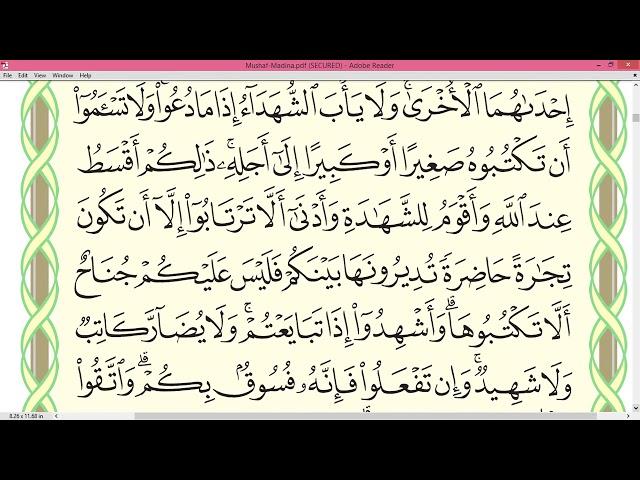 Mushaf-Madina.pdf (SECURED) - Adobe Reader
File Edit View Window Help
إِحْدَىٰهُمَا ٱلْأُخْرَىٰۚ وَلَا يَأْبَ ٱلشُّهَدَآءُ إِذَا مَا دُعُوا۟ۚ وَلَا تَسْـَٔمُوٓا۟
أَن تَكْتُبُوهُ صَغِيرًا أَوْ كَبِيرًا إِلَىٰٓ أَجَلِهِۦۚ ذَٰلِكُمْ أَقْسَطُ
عِندَ ٱللَّهِ وَأَقْوَمُ لِلشَّهَـٰدَةِ وَأَدْنَىٰٓ أَلَّا تَرْتَابُوٓا۟ إِلَّآ أَن تَكُونَ
تِجَـٰرَةً حَاضِرَةً تُدِيرُونَهَا بَيْنَكُمْ فَلَيْسَ عَلَيْكُمْ جُنَاحٌ
أَلَّا تَكْتُبُوهَاۗ وَأَشْهِدُوٓا۟ إِذَا تَبَايَعْتُمْۚ وَلَا يُضَآرَّ كَاتِبٌ
وَلَا شَهِيدٌۚ وَإِن تَفْعَلُوا۟ فَإِنَّهُۥ فُسُوقٌۢ بِكُمْۗ وَٱتَّقُوا۟
8.26 x 11.68 in